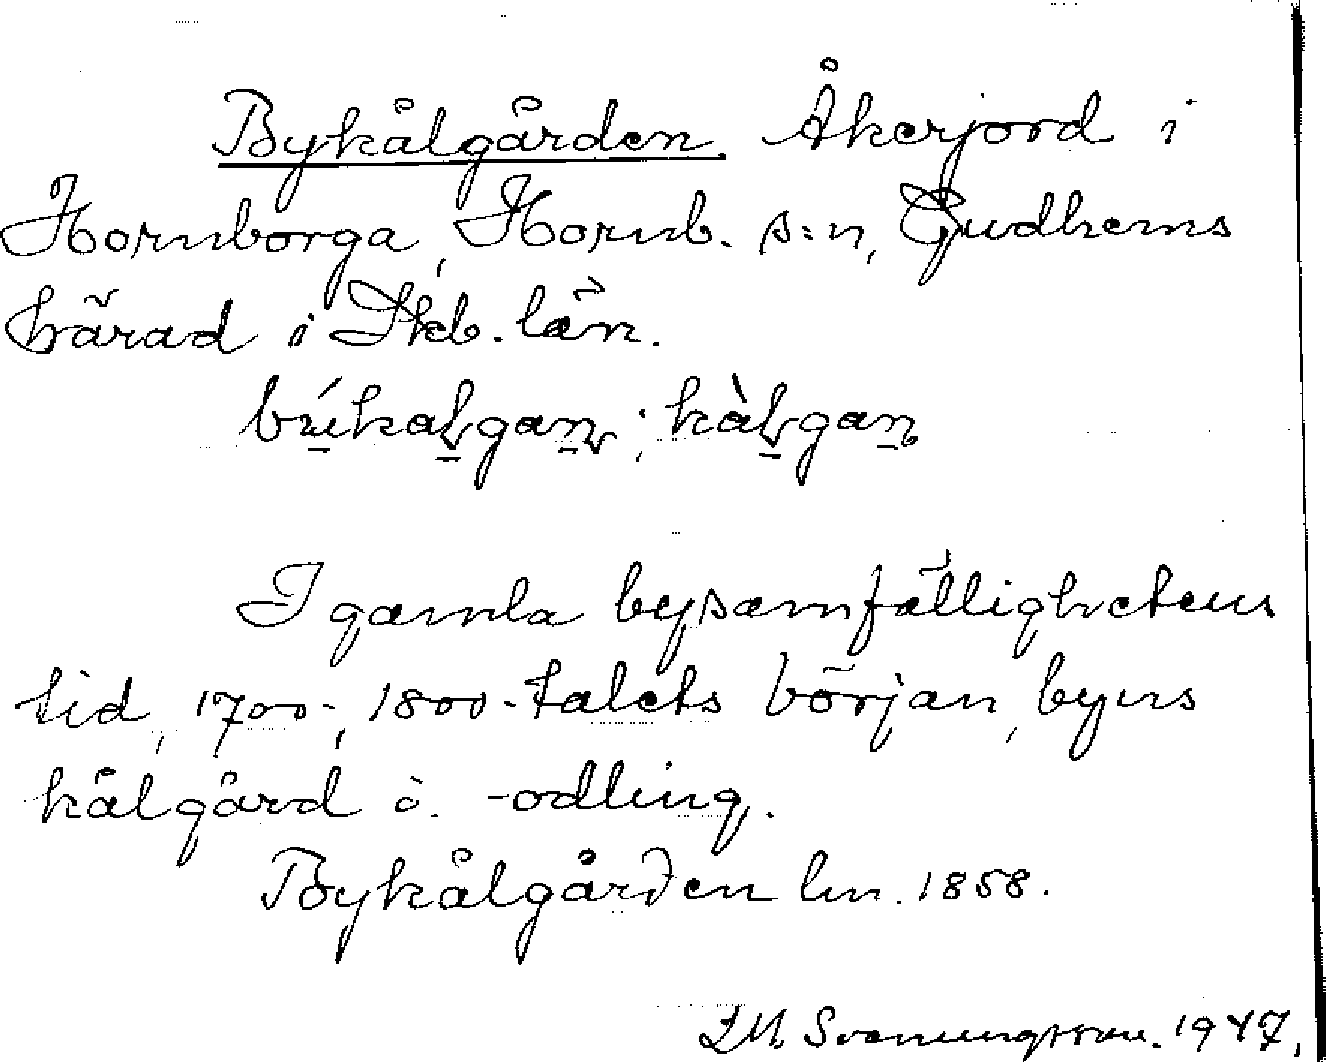 Bykålgården. Åkerjord i
Hornborga, Hornb. s:n, Gudhems
härad i Skb. län.
býkaļgaṉ; kàļgaṉ
I gamla bysamfällighetens
tid, 1700-, 1800-talets början, byns
kålgård o. -odling.
Bykålgården lm. 1858.
Svenungsson. 1947.